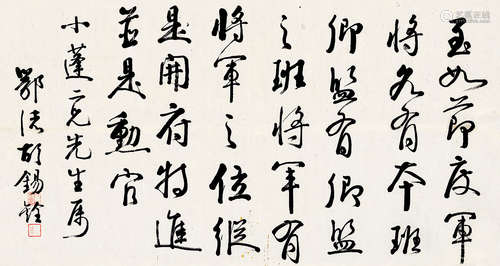 至如節度軍
將各有本班
卿監有卿監
之班將軍有
將軍之位縱
是開府特進
並是勳官
小蓬二兄先生属
鄂渚胡錫銓